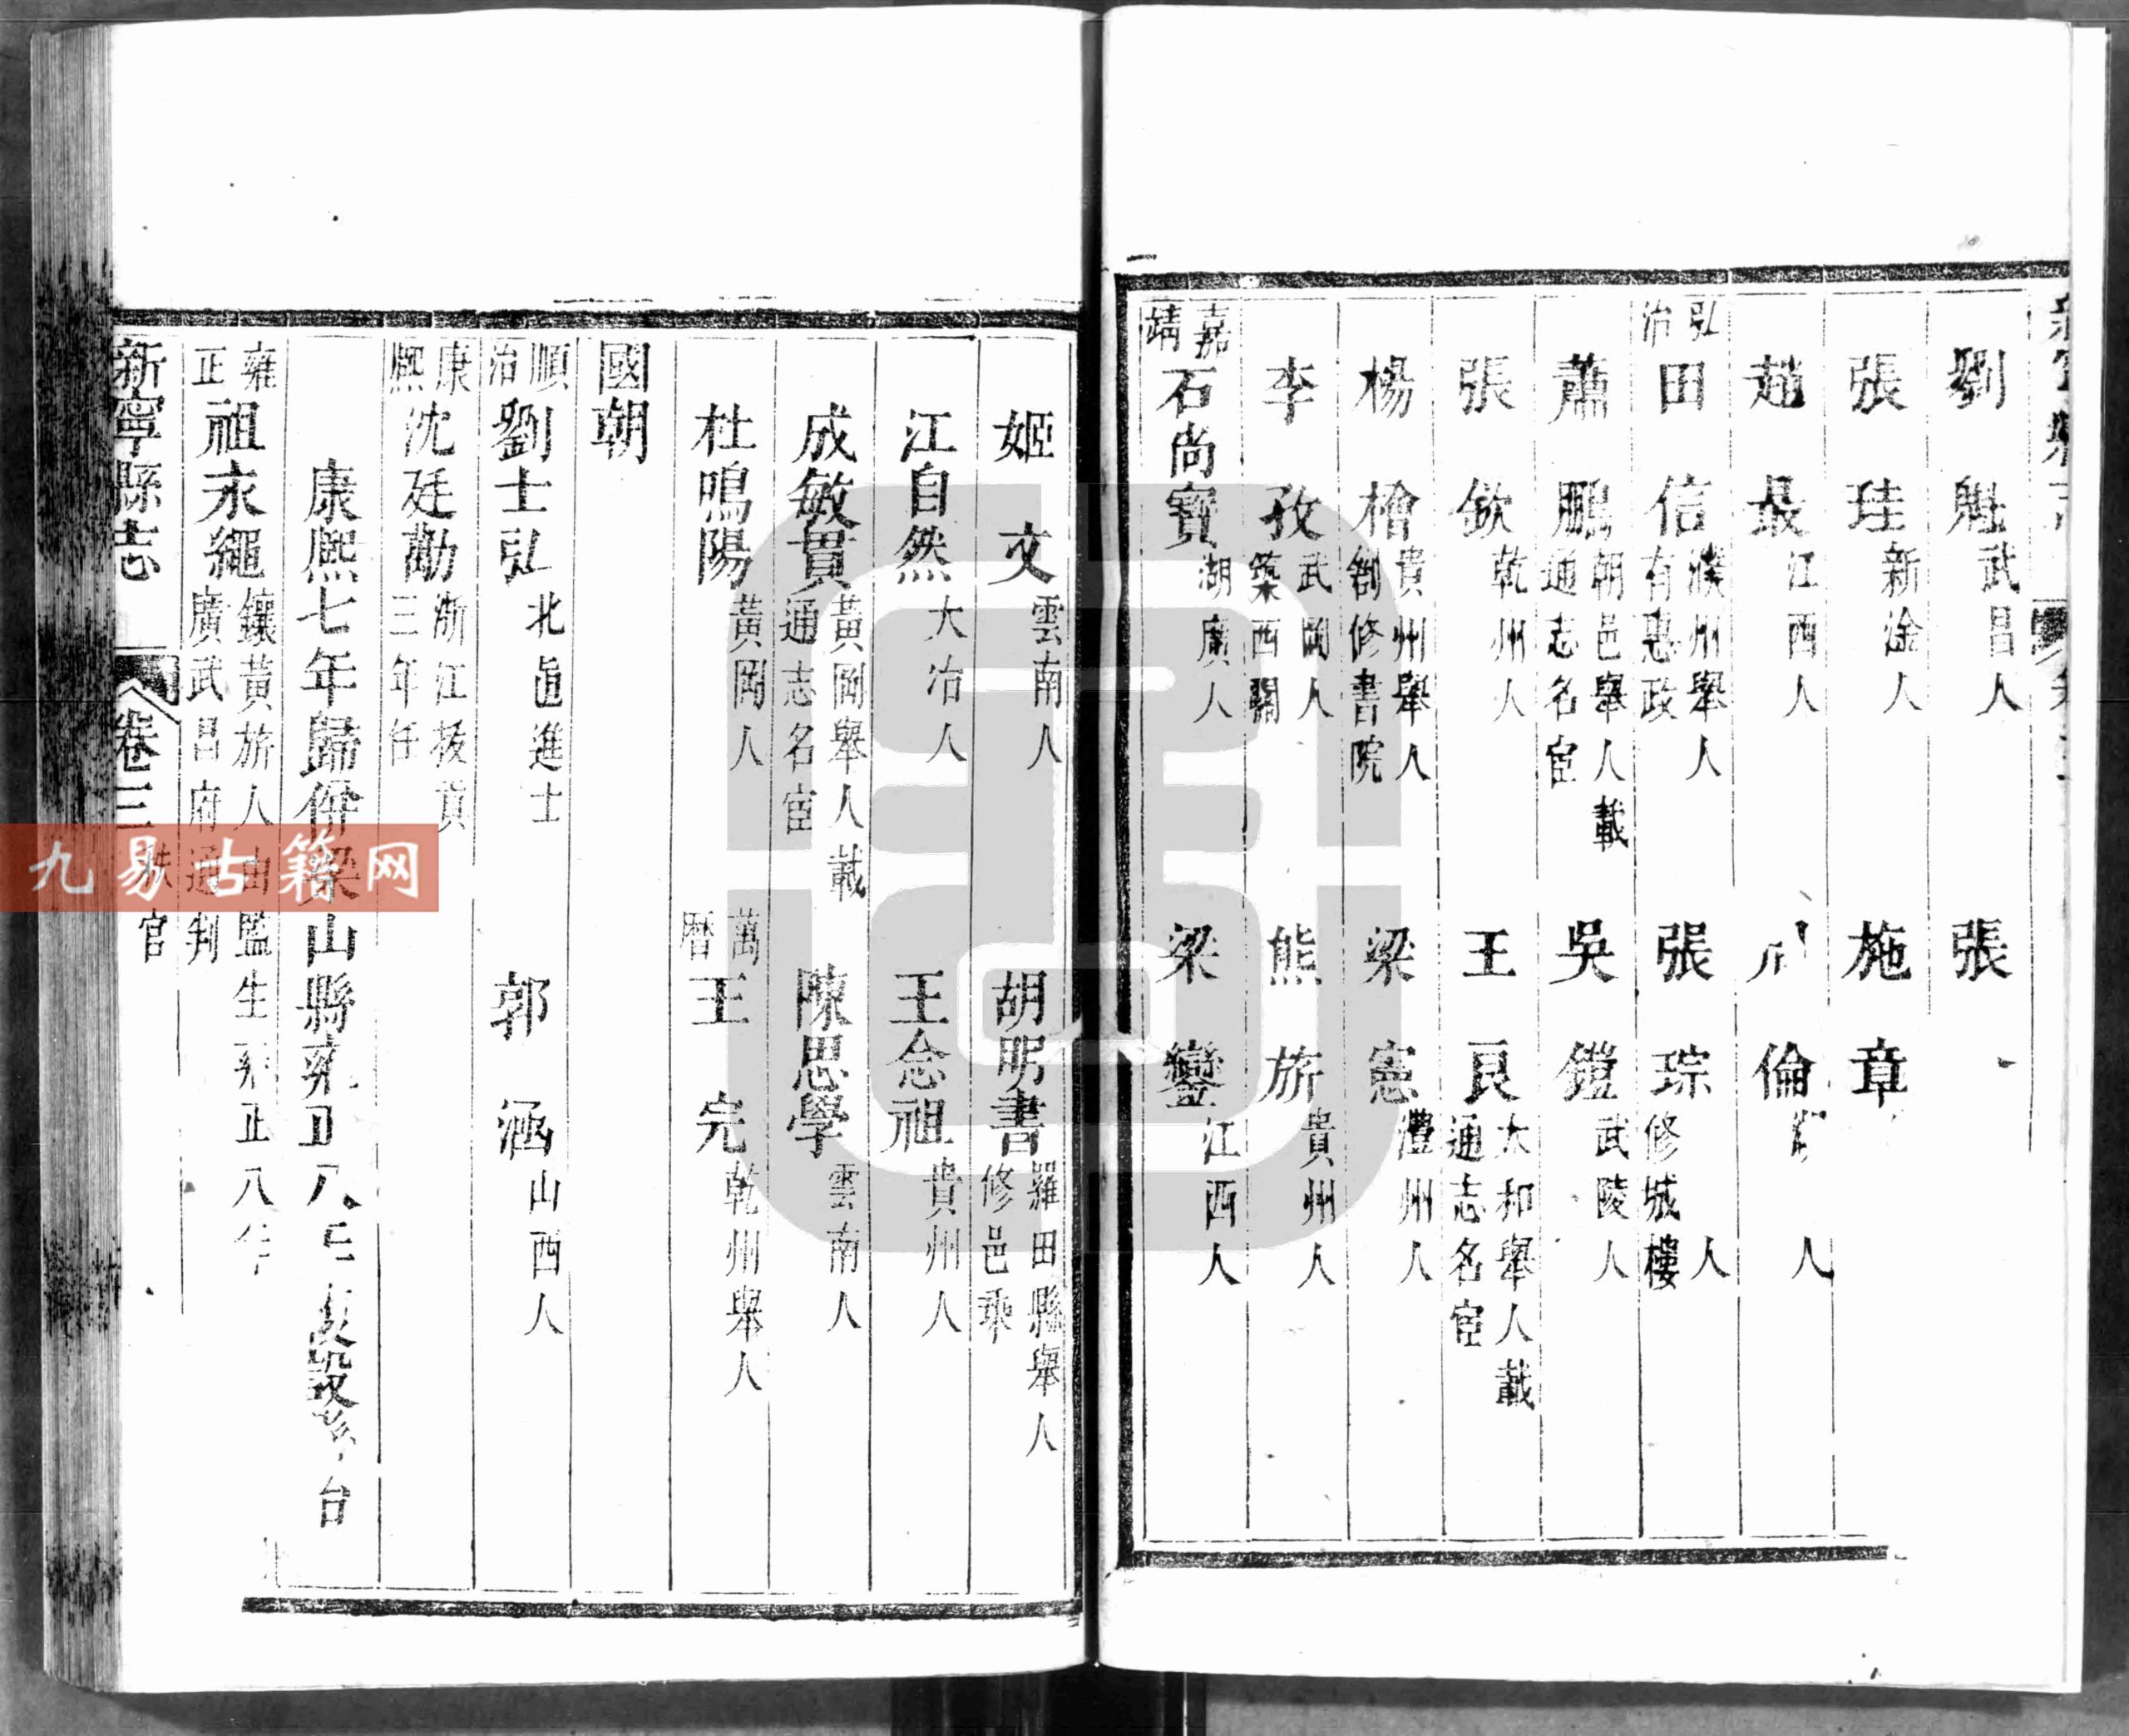 劉魁 武昌人 張
張珪 新淦人 施章
趙最 江西人 倫 人
弘治 田信 濮州舉人有惠政 張琮 人修城樓
蕭鵬 朝邑舉人載通志名宦 吳鏜 武陵人
張欽 乾州人 王良 太和舉人載通志名宦
楊檜 貴州舉人創修書院 梁憲 澧州人
李孜 武岡人築西關 熊旂 貴州人
嘉靖 石尚寶 湖廣人 梁鑾 江西人
姬文 雲南人 胡明書 羅田縣舉人修邑乘
江自然 大冶人 王念祖 貴州人
成敏貫 黃岡舉人載通志名宦 陳思學 雲南人
杜鳴陽 黃岡人 萬曆 王完 乾州舉人
國朝
順治 劉士弘 北直進士 郭涵 山西人
康熙 沈廷勱 浙江拔貢三年任
康熙七年歸併梁山縣雍正八年復設
雍正 祖永繩 鑲黃旂人由監生雍正八年 廣武昌府通判
新寧縣志 卷三 秩官
九易古籍网